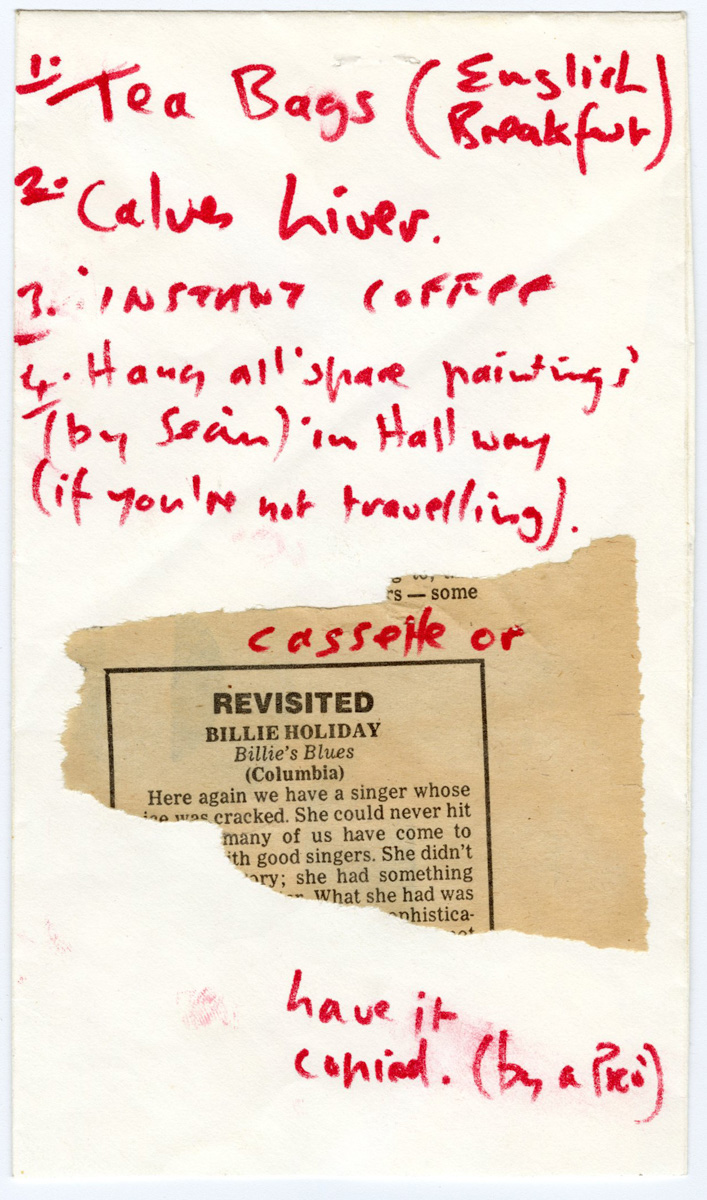 1. Tea Bags (English
Breakfast)
2. Calves Liver.
3. INSTANT COFFEE
4. Hang all 'spare paintings'
(by Seán) in Hallway
(if you're not travelling).
rs — some
cassette or
REVISITED
BILLIE HOLIDAY
Billie's Blues
(Columbia)
Here again we have a singer whose
was cracked. She could never hit
many of us have come to
ith good singers. She didn't
ory; she had something
What she had was
ophistica-
have it
copied. (by a Pro)